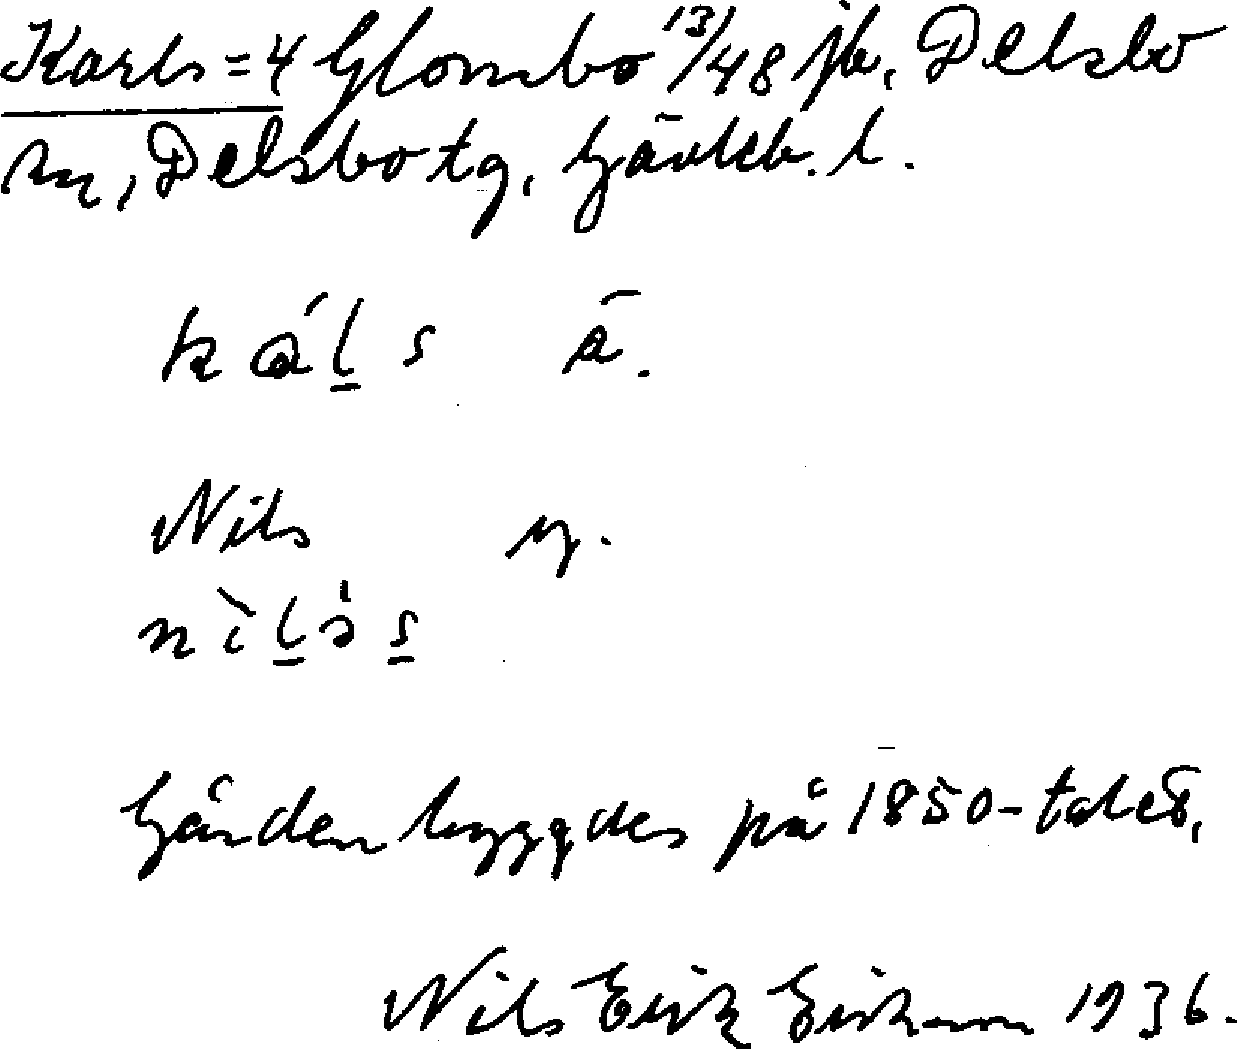 Karls = 4 Glombo 13/48 jb, Delsbo
sn, Delsbo tg, Gävleb. l.
káḻs ä.
Nils y.
nìḻəs̱
Gården byggdes på 1850-talet,
Nils Erik Eriksson 1936.